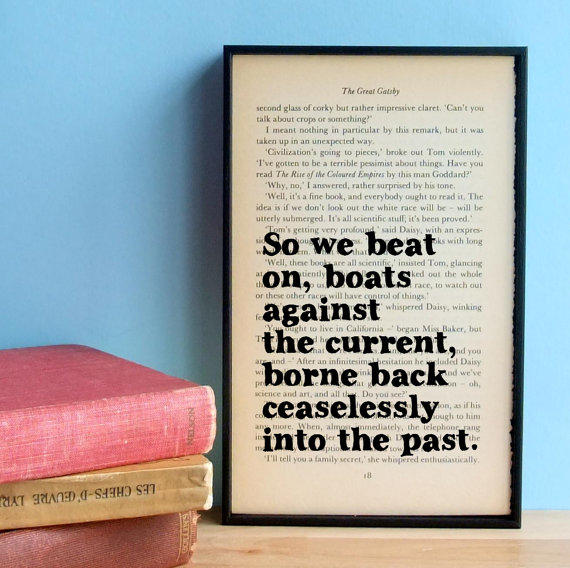 The Great Gatsby
second glass of corky but rather impressive claret. 'Can't you
talk about crops or something?'
I meant nothing in particular by this remark, but it was
taken up in an unexpected way.
'Civilization's going to pieces,' broke out Tom violently.
'I've gotten to be a terrible pessimist about things. Have you
read The Rise of the Coloured Empires by this man Goddard?'
'Why, no,' I answered, rather surprised by his tone.
'Well, it's a fine book, and everybody ought to read it. The
idea is if we don't look out the white race will be – will be
utterly submerged. It's all scientific stuff; it's been proved.'
'Tom's getting very profound,' said Daisy, with an expres-
with long
'Well, these books are all scientific,' insisted Tom, glancing
at
out the whole
race, to watch out
or these other races will have control of things.'
whispered Daisy, winking
to live in California –' began Miss Baker, but
and
and –' After an infinitesimal hesitation he included Daisy
we've
– oh,
science and art, and all that. Do you see?'
as if his
to him
and more. When, almost immediately, the telephone rang
'I'll tell you a family secret,' she whispered enthusiastically.
18
So we beat
on, boats
against
the current,
borne back
ceaselessly
into the past.
NELSON
LES CHEFS-D'ŒUVRE LYRI